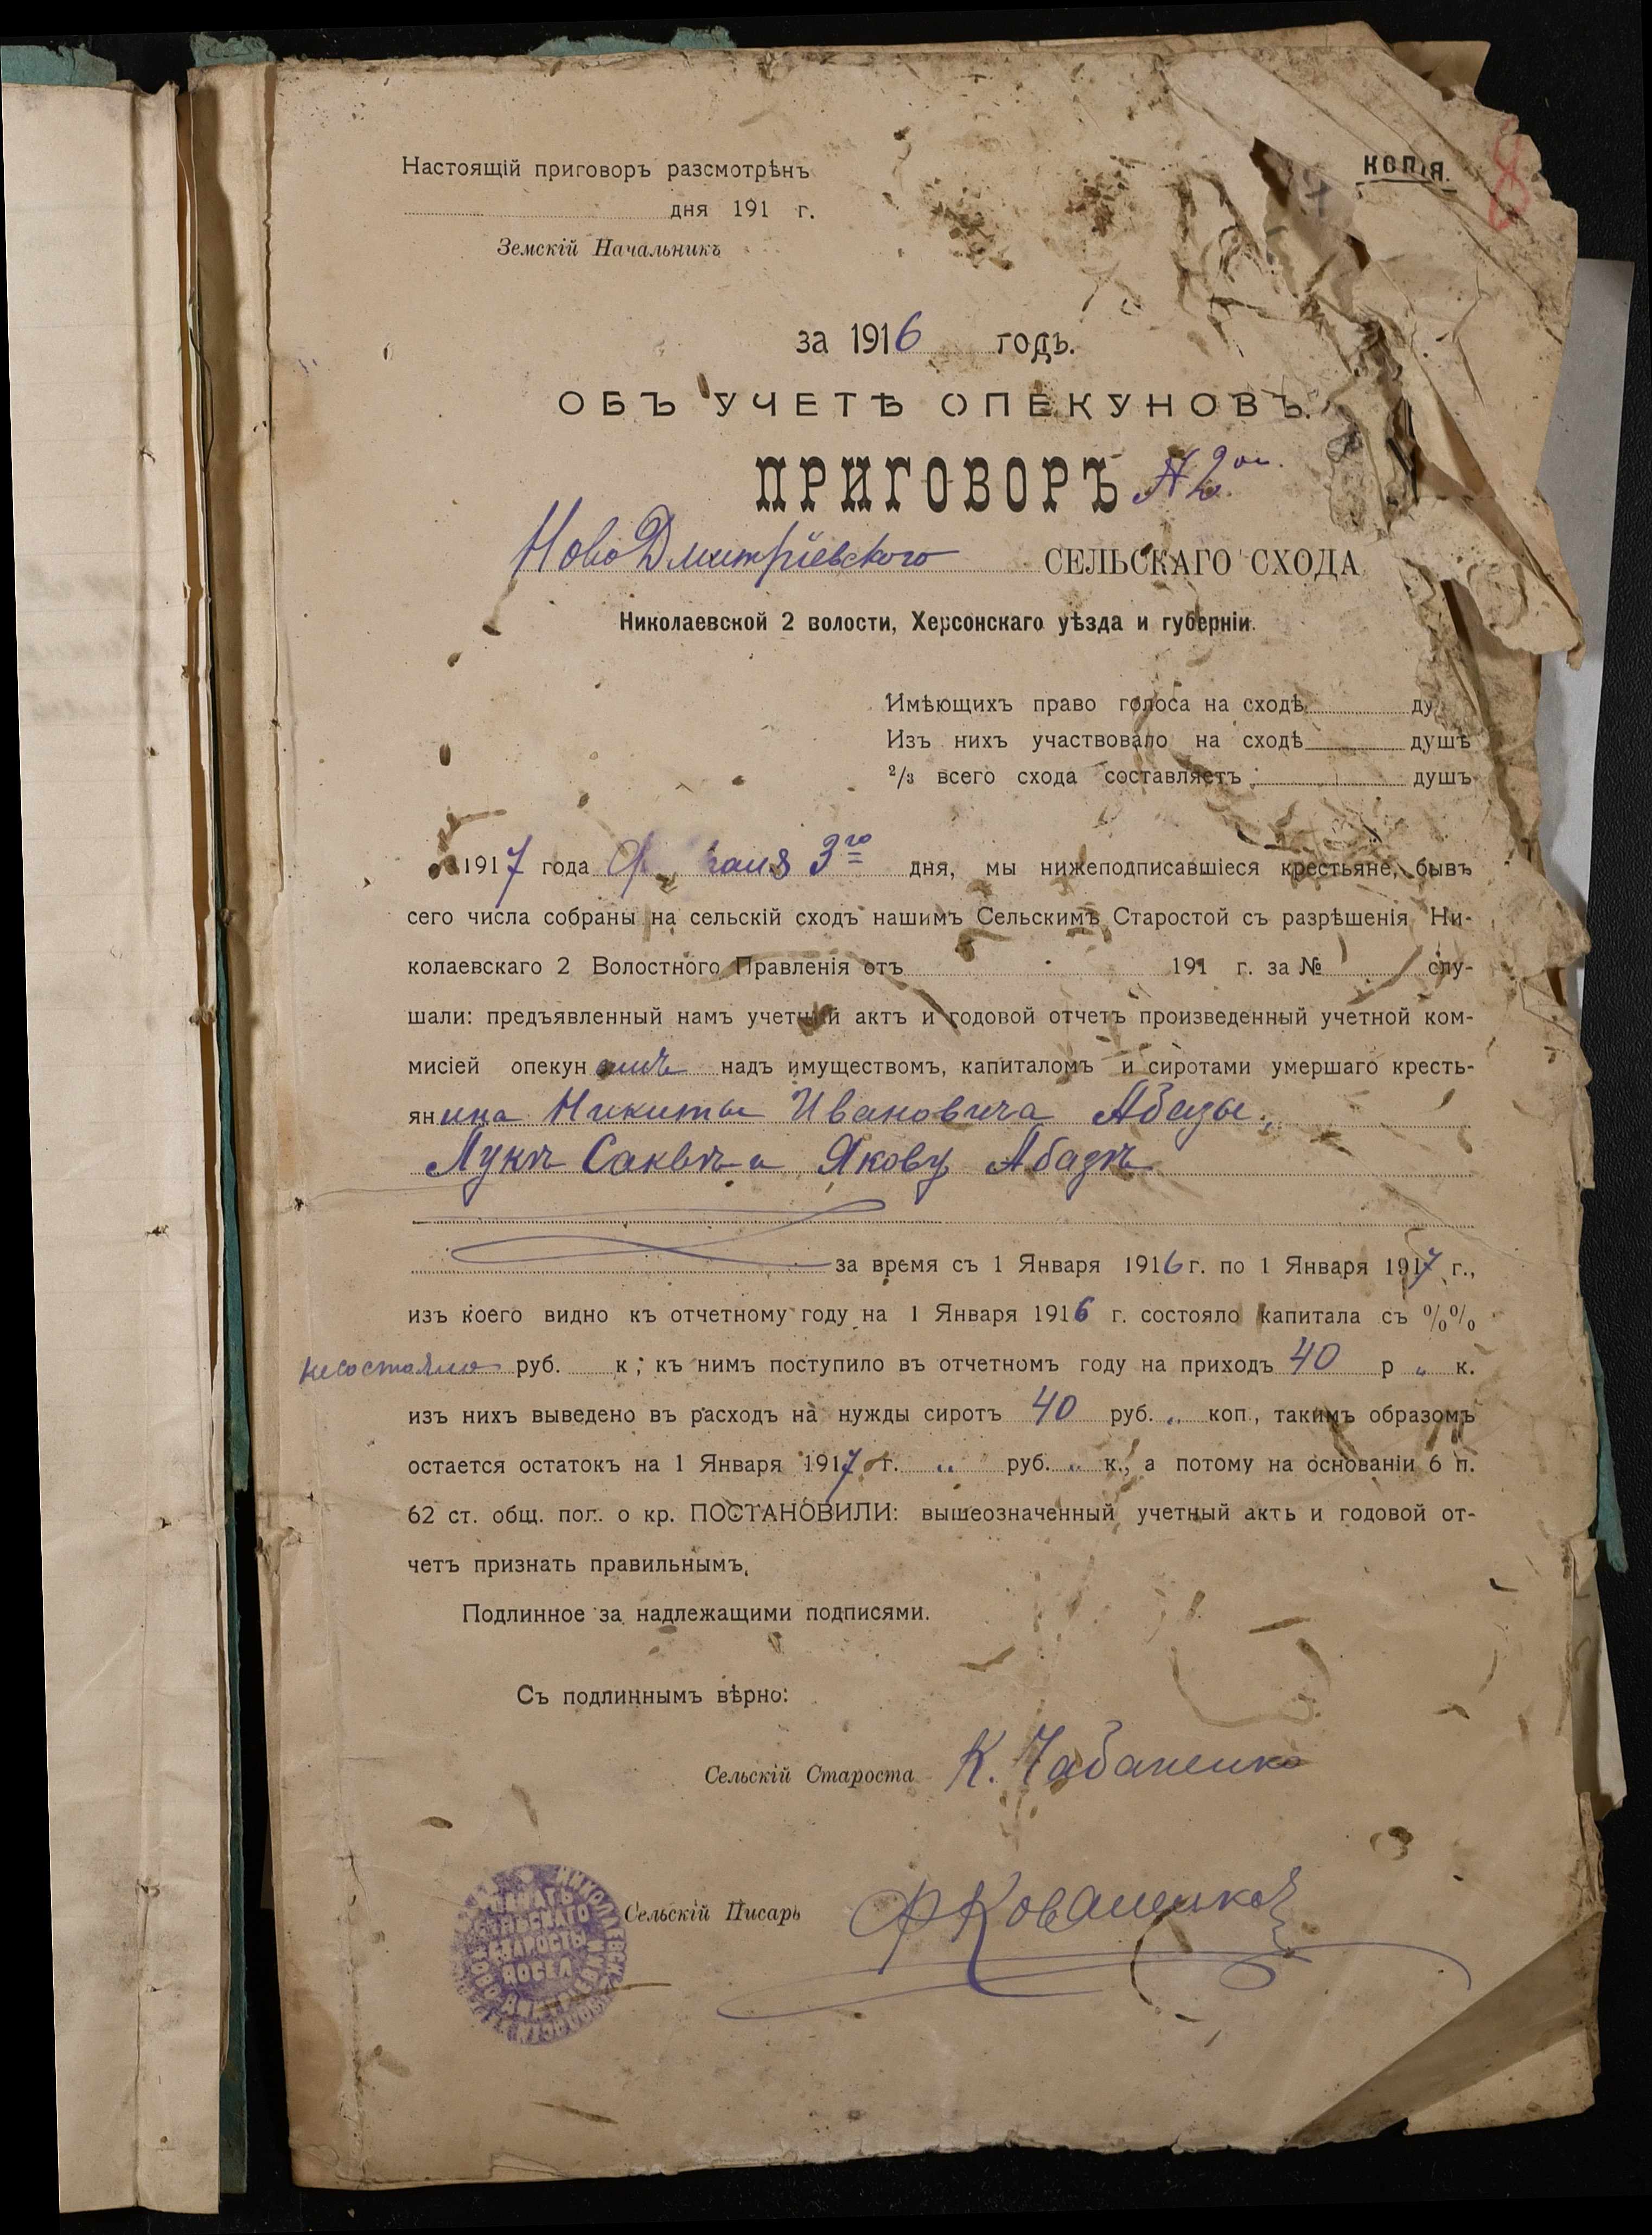 КОПІЯ.
8
Настоящій приговоръ разсмотрѣнъ
дня 191 г.
Земскій Начальникъ
за 1916 годъ.
ОБЪ УЧЕТѢ ОПЕКУНОВЪ.
ПРИГОВОРЪ № 2ой.
НовоДмитріевского СЕЛЬСКАГО СХОДА
Николаевской 2 волости, Херсонскаго уѣзда и губерніи.
Имѣющихъ право голоса на сходѣ ду
Изъ нихъ участвовало на сходѣ душъ
2/3 всего схода составляетъ душъ
1917 года 3го дня, мы нижеподписавшіеся крестьяне, бывъ
сего числа собраны на сельскій сходъ нашимъ Сельскимъ Старостой съ разрѣшенія Ни-
колаевскаго 2 Волостного Правленія отъ 191 г. за № слу-
шали: предъявленный намъ учетный актъ и годовой отчетъ произведенный учетной ком-
мисіей опекун надъ имуществомъ, капиталомъ и сиротами умершаго кресть-
янина Никиты Ивановича Абазы,
Лукѣ Саквѣ и Якову Абазѣ
за время съ 1 Января 1916 г. по 1 Января 1917 г.,
изъ коего видно къ отчетному году на 1 Января 1916 г. состояло капитала съ %%
несостояло руб. к; къ нимъ поступило въ отчетномъ году на приходъ 40 р „ к.
изъ нихъ выведено въ расходъ на нужды сиротъ 40 руб. „ коп., такимъ образомъ
остается остатокъ на 1 Января 1917 г. „ руб. „ к., а потому на основаніи 6 п.
62 ст. общ. пол. о кр. ПОСТАНОВИЛИ: вышеозначенный учетный актъ и годовой от-
четъ признать правильнымъ.
Подлинное за надлежащими подписями.
Съ подлиннымъ вѣрно:
Сельскій Староста К. Чабаненко
Сельскій Писарь ФКоваленко